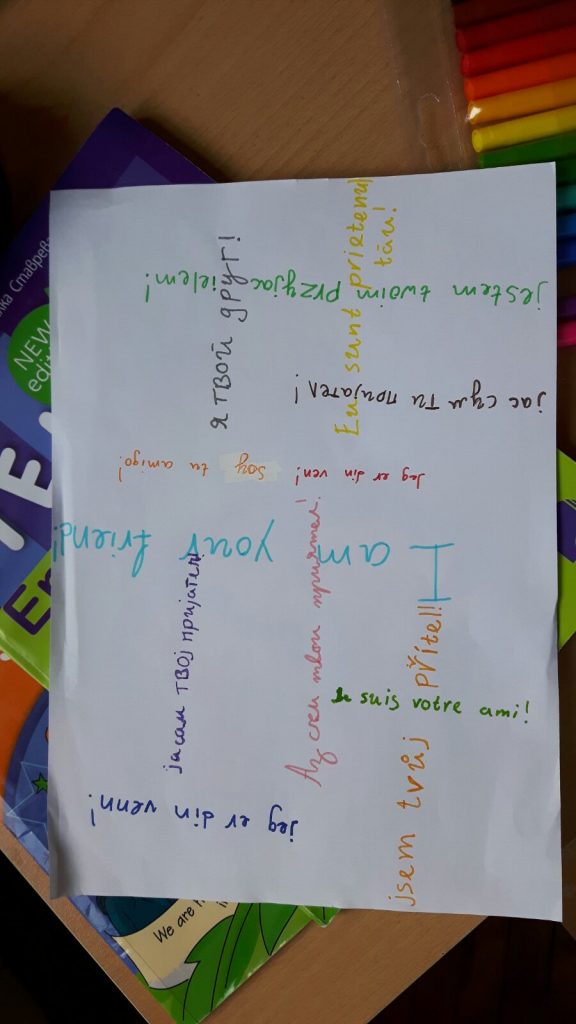 jestem twoim przyjacielem!
я твой друг!
Eu sunt prietenul
tău!
јас сум ти пријател!
soy tu amigo!
Jeg er din ven!
I am your friend!
Аз съм твой приятел!
ја сам твој пријатељ!
suis votre ami!
jsem tvůj přítel!
jeg er din venn!
NEW
edit
We are